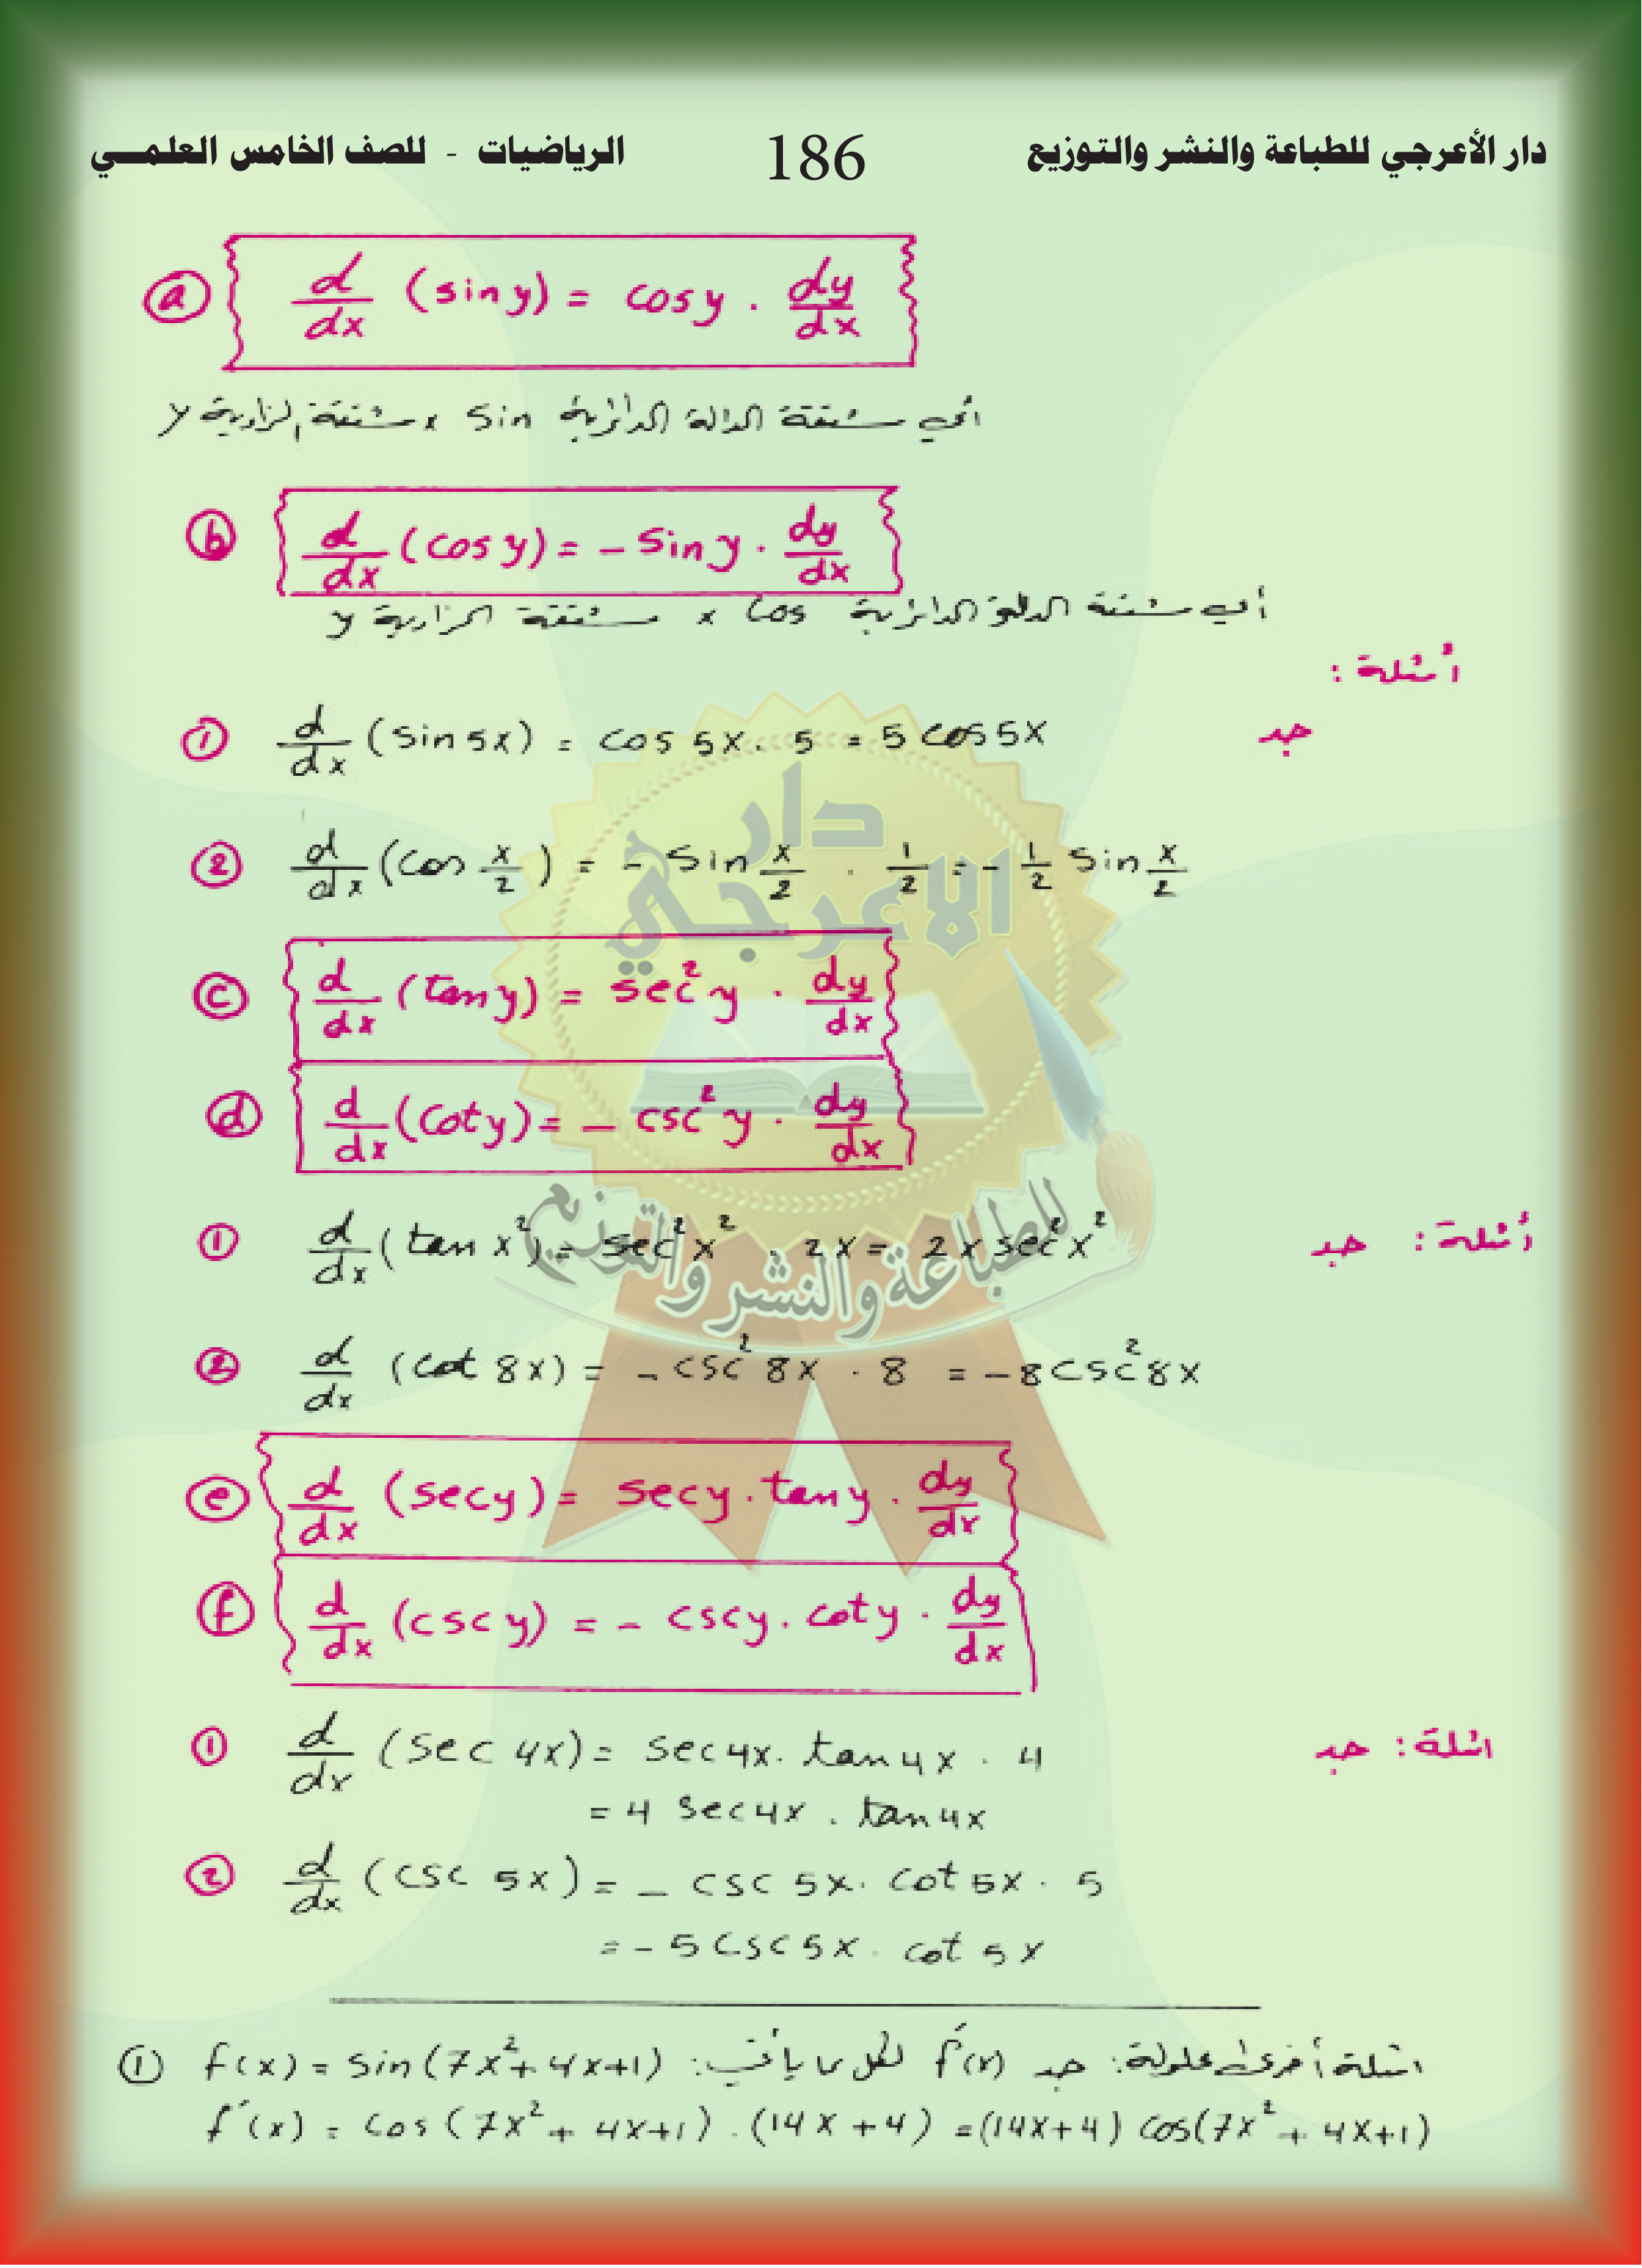 دار الأعرجي للطباعة والنشر والتوزيع 186 الرياضيات - للصف الخامس العلمي
ⓐ d/dx (sin y) = cos y . dy/dx
أي مشتقة الدالة الدائرية sin × مشتقة الزاوية y
ⓑ d/dx (cos y) = - sin y . dy/dx
أي مشتقة الدالة الدائرية cos × مشتقة الزاوية y
أمثلة :
① d/dx (sin 5x) = cos 5x . 5 = 5 cos 5x جد
② d/dx (cos x/2) = - sin x/2 . 1/2 = - 1/2 sin x/2
ⓒ d/dx (tan y) = sec² y . dy/dx
ⓓ d/dx (cot y) = - csc² y . dy/dx
① d/dx (tan x²) = sec² x² . 2x = 2x sec² x² أمثلة : جد
② d/dx (cot 8x) = - csc² 8x . 8 = - 8 csc² 8x
ⓔ d/dx (sec y) = sec y . tan y . dy/dx
ⓕ d/dx (csc y) = - csc y . cot y . dy/dx
① d/dx (sec 4x) = sec 4x . tan 4x . 4 امثلة : جد
= 4 sec 4x . tan 4x
② d/dx (csc 5x) = - csc 5x . cot 5x . 5
= - 5 csc 5x . cot 5x
امثلة أخرى محلولة: جد f′(x) لكل مما يأتي: ① f(x) = sin (7x² + 4x + 1)
f′(x) = cos (7x² + 4x + 1) . (14x + 4) = (14x + 4) cos (7x² + 4x + 1)
دار
الاعرجي
للطباعة والنشر والتوزيع